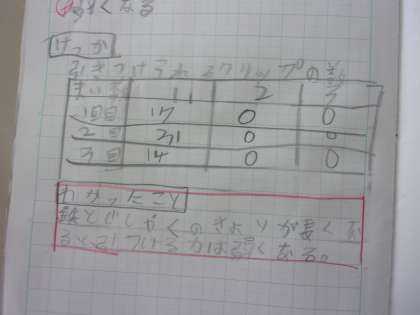 くなる
けっか
引きつけられ クリップの数
まい数 1 2 3
1回目 17 0 0
2回目 21 0 0
3回目 14 0 0
わかったこと
鉄とじしゃくのきょりが長くな
るとひいつ 力は弱くなる。